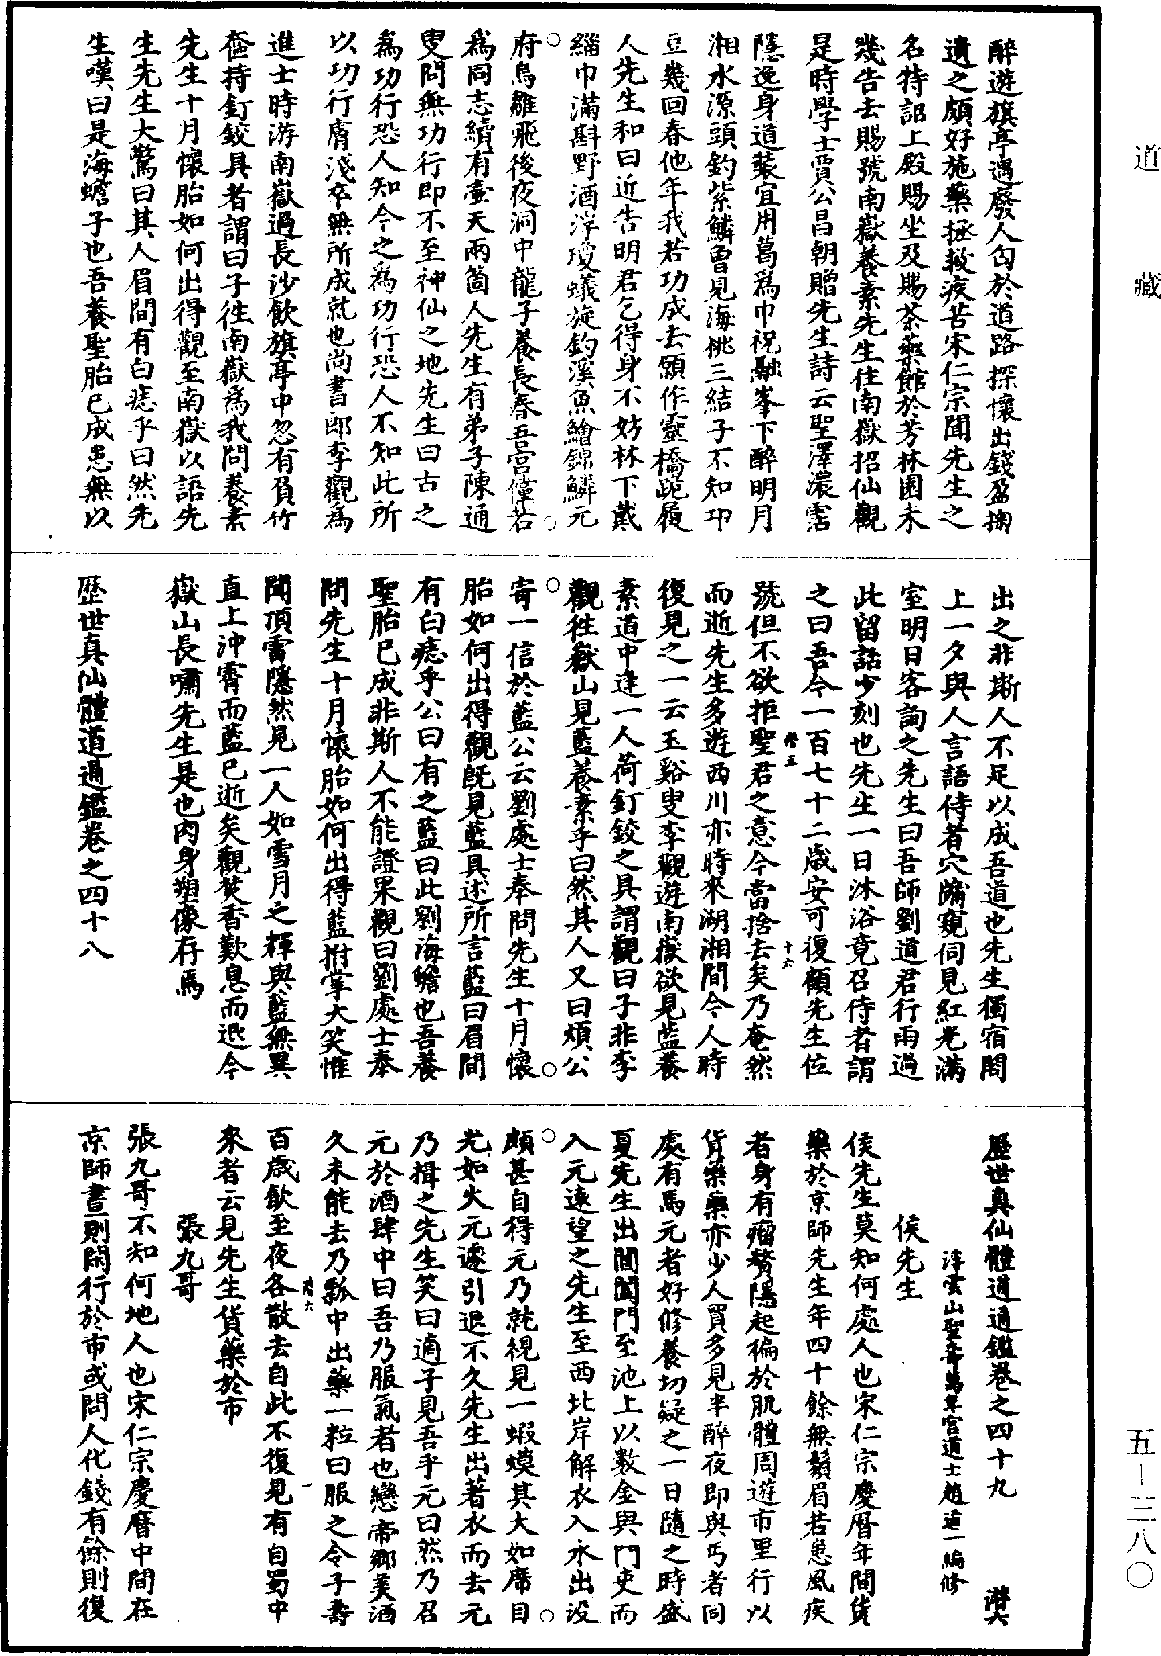 道藏
五—三八〇
醉遊旗亭遇廢人匄於道路探懷出錢盈掬
遺之頗好施藥拯救疾苦宋仁宗聞先生之
名特詔上殿賜坐及賜茶藥館於芳林園未
幾告去賜號南嶽養素先生住南嶽招仙觀
是時學士賈公昌朝贈先生詩云聖澤濃霑
隱逸身道裝宜用葛為巾祝融峯下醉明月
湘水源頭釣紫鱗曾見海桃三結子不知卭
豆幾回春他年我若功成去願作靈橋跪履
人先生和曰近告明君乞得身不妨林下戴
緇巾滿斟野酒浮瓊蟻旋釣溪魚鱠錦鱗元
府鳥雛飛後夜洞中龍子養長春吾宫僮若
為同志續有壺天兩箇人先生有弟子陳通
叟問無功行即不至神仙之地先生曰古之
為功行恐人知今之為功行恐人不知此所
以功行膚淺卒無所成就也尚書郎李觀為
進士時游南嶽過長沙飲旗亭中忽有負竹
奩持釘鉸具者謂曰子徃南嶽為我問養素
先生十月懷胎如何出得觀至南嶽以語先
生先生大驚曰其人眉間有白痣乎曰然先
生嘆曰是海蟾子也吾養聖胎已成患無以
出之非斯人不足以成吾道也先生獨宿閣
上一夕與人言語侍者穴牖窺伺見紅光滿
室明日客詢之先生曰吾師劉道君行雨過
此留話少刻也先生一日沐浴竟召侍者謂
之曰吾今一百七十二歲安可復顧先生位
號但不欲拒聖君之意今當捨去矣乃奄然
而逝先生多遊西川亦時來湖湘間今人時
復見之一云玉谿叟李觀遊南嶽欲見藍養
素道中逢一人荷釘鉸之具謂觀曰子非李
觀徃嶽山見藍養素乎曰然其人又曰煩公
寄一信於藍公云劉處士奉問先生十月懷
胎如何出得觀既見藍具述所言藍曰眉間
有白痣乎公曰有之藍曰此劉海蟾也吾養
聖胎已成非斯人不能證果觀曰劉處士奉
問先生十月懷胎如何出得藍拊掌大笑惟
聞頂雷隱然見一人如雪月之輝與藍無異
直上沖霄而藍已逝矣觀焚香歎息而退今
嶽山長嘯先生是也肉身塑像存焉
歷世真仙體道通鑑卷之四十八
歷世真仙體道通鑑卷之四十九 潛六
浮雲山聖壽萬年宮道士趙道一編修
侯先生
侯先生莫知何處人也宋仁宗慶曆年間貨
藥於京師先生年四十餘無鬚眉若患風疾
者身有瘤贅隱起徧於肌體周遊市里行以
貨藥藥亦少人買多見半醉夜即與丐者同
處有馬元者好修養切疑之一日隨之時盛
夏先生出閶闔門至池上以數金與門吏而
入元遠望之先生至西北岸解衣入水出沒
頗甚自得元乃就視見一蝦蟆其大如席目
光如火元遽引退不久先生出著衣而去元
乃揖之先生笑曰適子見吾乎元曰然乃召
元於酒肆中曰吾乃服氣者也戀帝鄉美酒
久未能去乃瓢中出藥一粒曰服之令子壽
百歲飲至夜各散去自此不復見有自蜀中
來者云見先生貨藥於市
張九哥
張九哥不知何地人也宋仁宗慶曆中間在
京師晝則閑行於市或問人化錢有餘則復